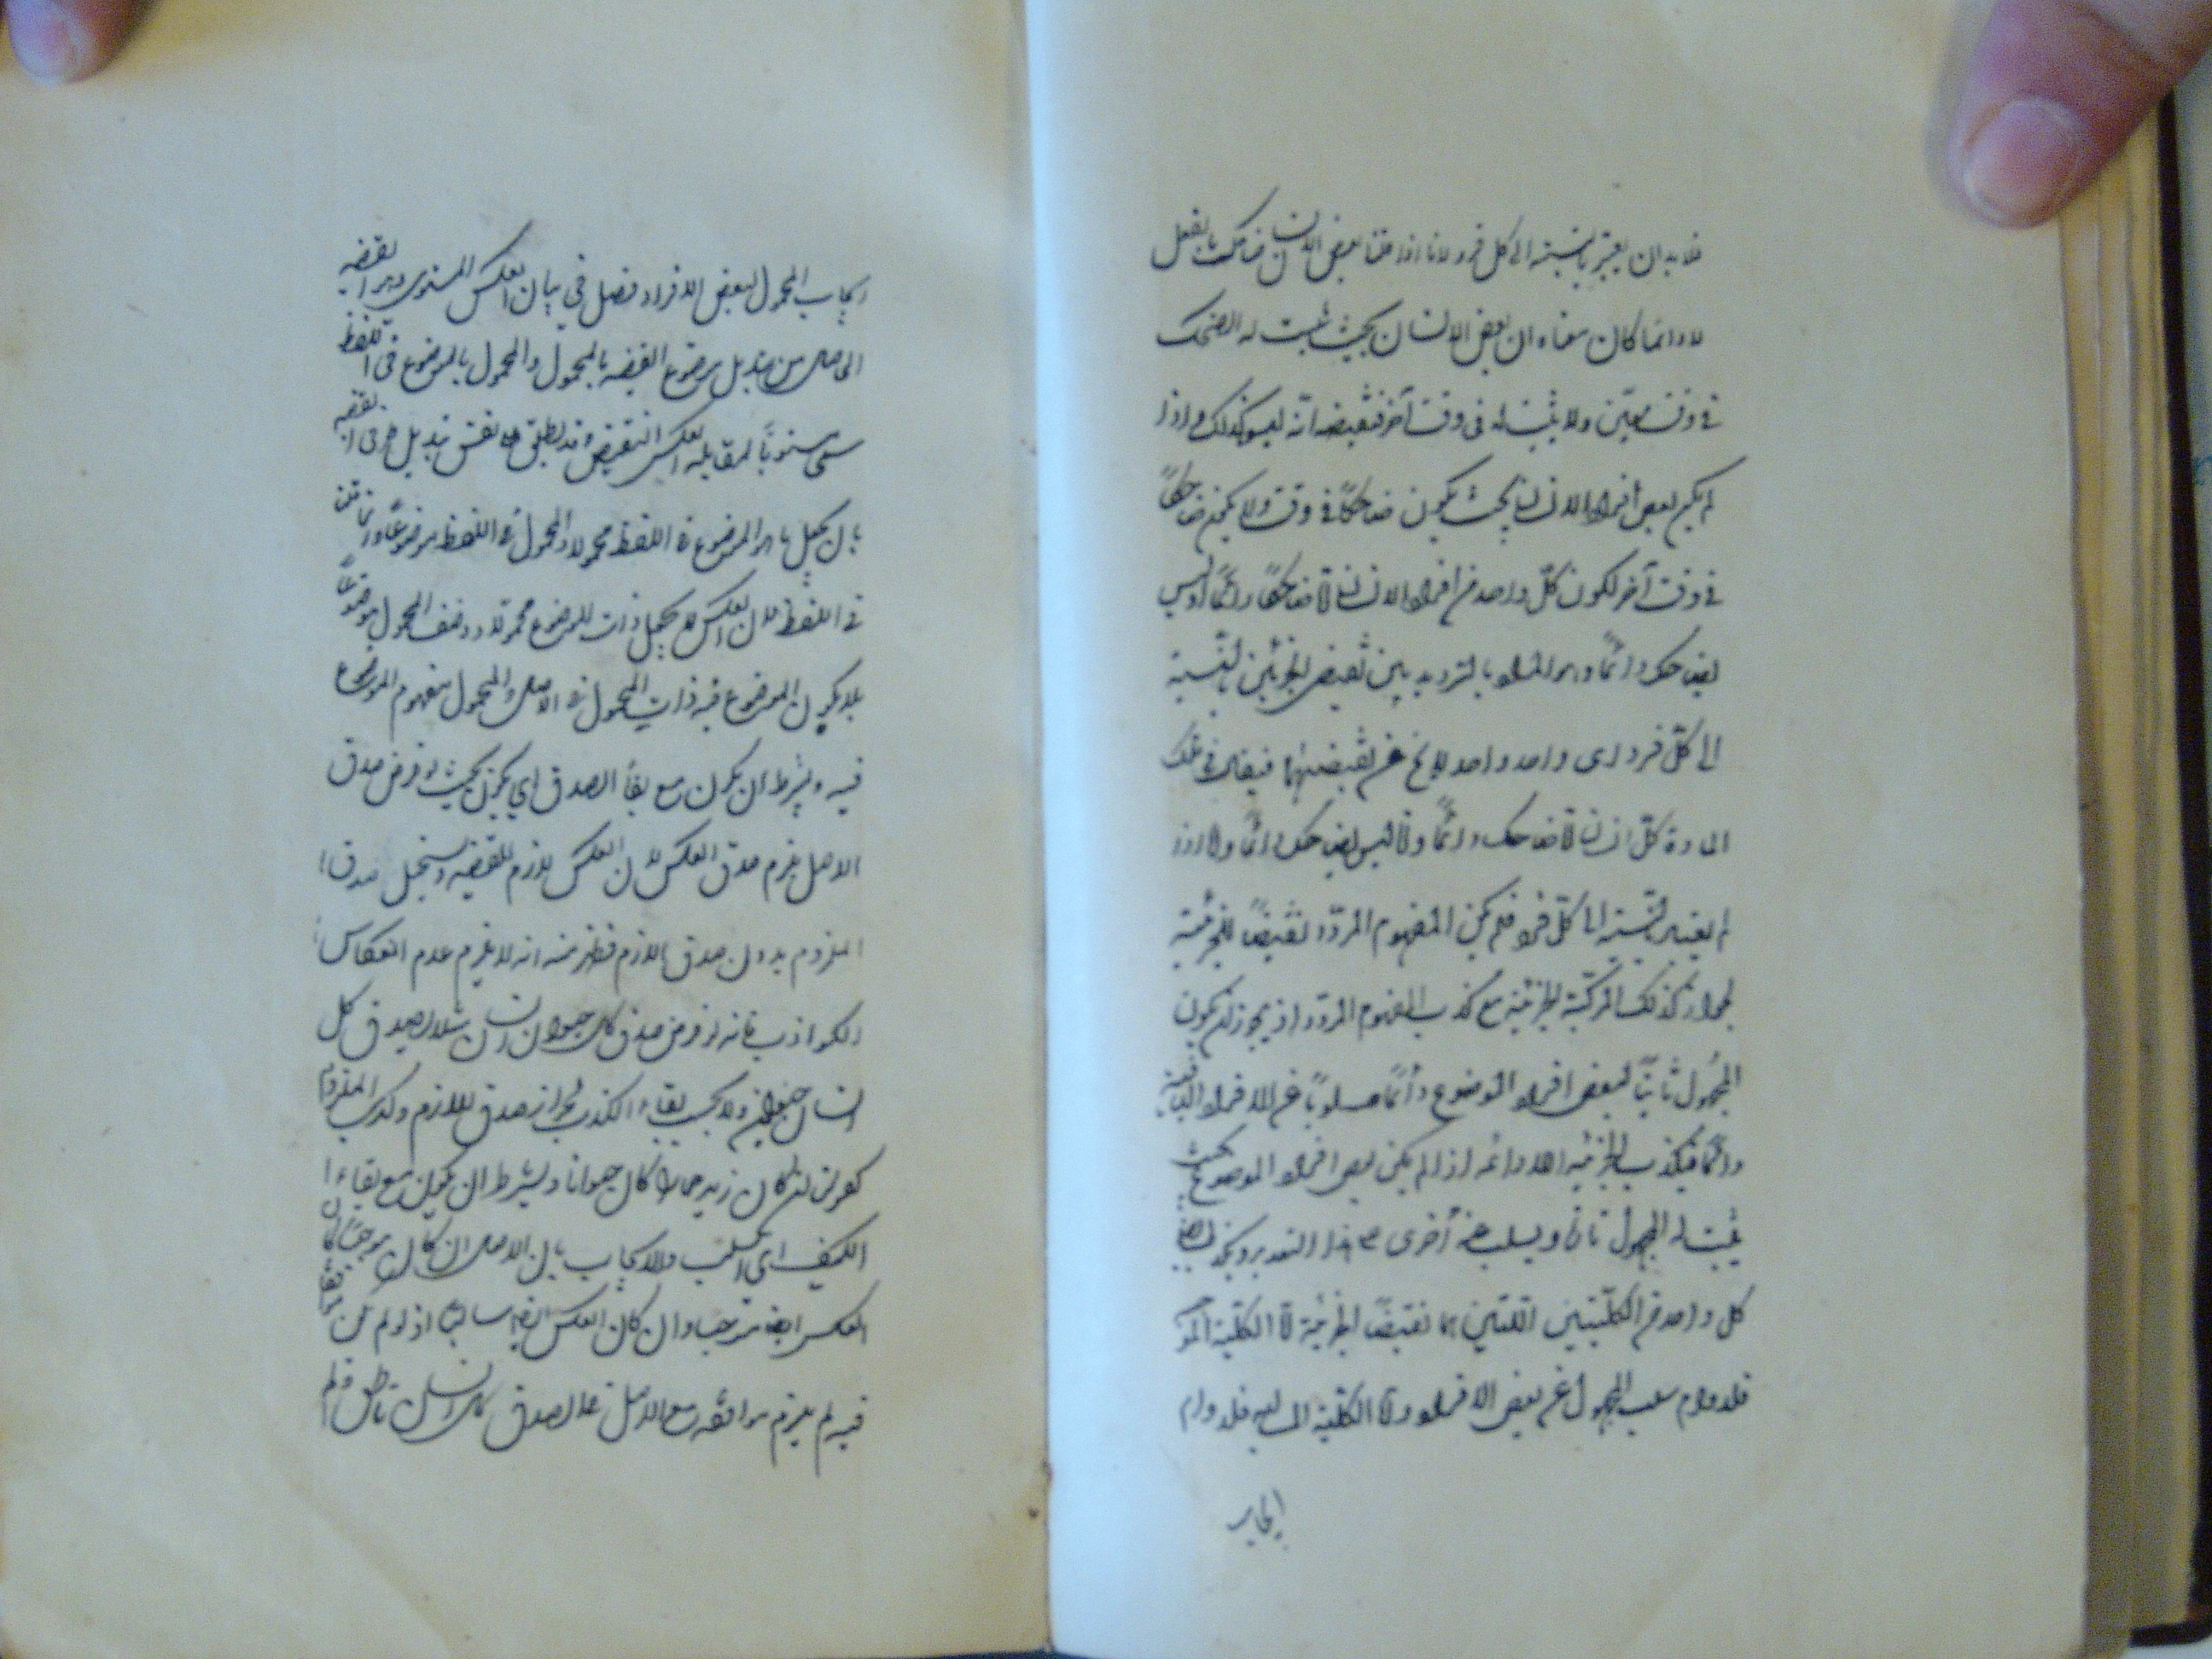 فلا بد ان يعتبر بالنسبة الى كل فرد لانا اذا قلنا بعض الانسان ضاحك بالفعل
لا دائما كان معناه ان بعض الانسان بحيث يثبت له الضحك
فى وقت معيّن ولا يثبت له فى وقت آخر فنقيضه انّه ليس كذلك و اذا
لم يكن بعض افراد الانسان بحيث يكون ضاحكاً فى وقت ولا يكون ضاحكاً
فى وقت آخر لكون كلّ واحد من افراد الانسان امّا ضاحكاً دائماً او ليس
بضاحك دائماً وهو المطلوب بالترديد بين نقيض الجزئين بالنسبة
الى كلّ فرد اى واحد واحد لا يخ عن نقيضيهما فيقال فى تلك
المادة كلّ انسان امّا ضاحك دائماً وامّا ليس بضاحك دائماً واما اذا
لم يعتبر بالنسبة الى كلّ فرد فلم يكن المفهوم المردّد نقيضاً للجزئية
لجواز كذب المركّبة الجزئية مع كذب المفهوم المردّد اذ يجوز ان يكون
المحمول ثابتاً لبعض افراد الموضوع دائماً مسلوباً عن الافراد الباقية
دائماً فيكذب الجزئيه اللادائمه اذ لم يكن بعض افراد الموضوع بحيث
يثبت له المحمول تارة ويسلب عنه أخرى هذا التقدير ويكذب ايضا
كل واحد من الكلّيتين اللتين هما نقيضا الجزئية امّا الكلّية الموجبة
فلدوام سلب المحمول عن بعض الافراد وامّا الكلّية السالبه فلدوام
ايجاب
ايجاب المحمول لبعض الافراد فصل فى بيان العكس المستوى وهو القضيه
الحاصله من تبديل موضوع القضيه بالمحمول والمحمول بالموضوع فى اللفظ
سمى مستويًا لمقابله العكس النقيض وقد يطلق على نفس تبديل طرفى القضيه
بان يجعل ما هو الموضوع فى اللفظ محمولا والمحمول فى اللفظ موضوعًا وانما قلنا
فى اللفظ لان العكس لا يجعل ذات الموضوع محمولا ووصف المحمول موضوعًا
بل يكون الموضوع فيه ذات المحمول فى الاصل والمحمول مفهوم الموضوع
فيه ويشرط ان يكون مع بقاء الصدق اى يكون بحيث لو فرض صدق
الاصل يلزم صدق العكس لان العكس لازم للقضيه ويستحيل صدق
الملزوم بدون صدق اللازم فظهر منه انه لا يلزم عدم انعكاس
الكواذب فانه لو فرض صدق كل حيوان انسان مثلا لصدق كل
انسان حيوان ولا يجب بقاء الكذب لجواز صدق اللازم وكذب الملزوم
كقولنا ان كان زيد حمارا كان حيوانا ويشرط ان يكون مع بقاء
الكيف اى السلب والايجاب بان الاصل ان كان موجبًا كان
العكس ايضا موجبا وان كان العكس ايضا سالبا اذ لو لم يكن موافقا
فيه لم يلزم موافقه مع الاصل فى الصدق كل انسان ناطق فلم